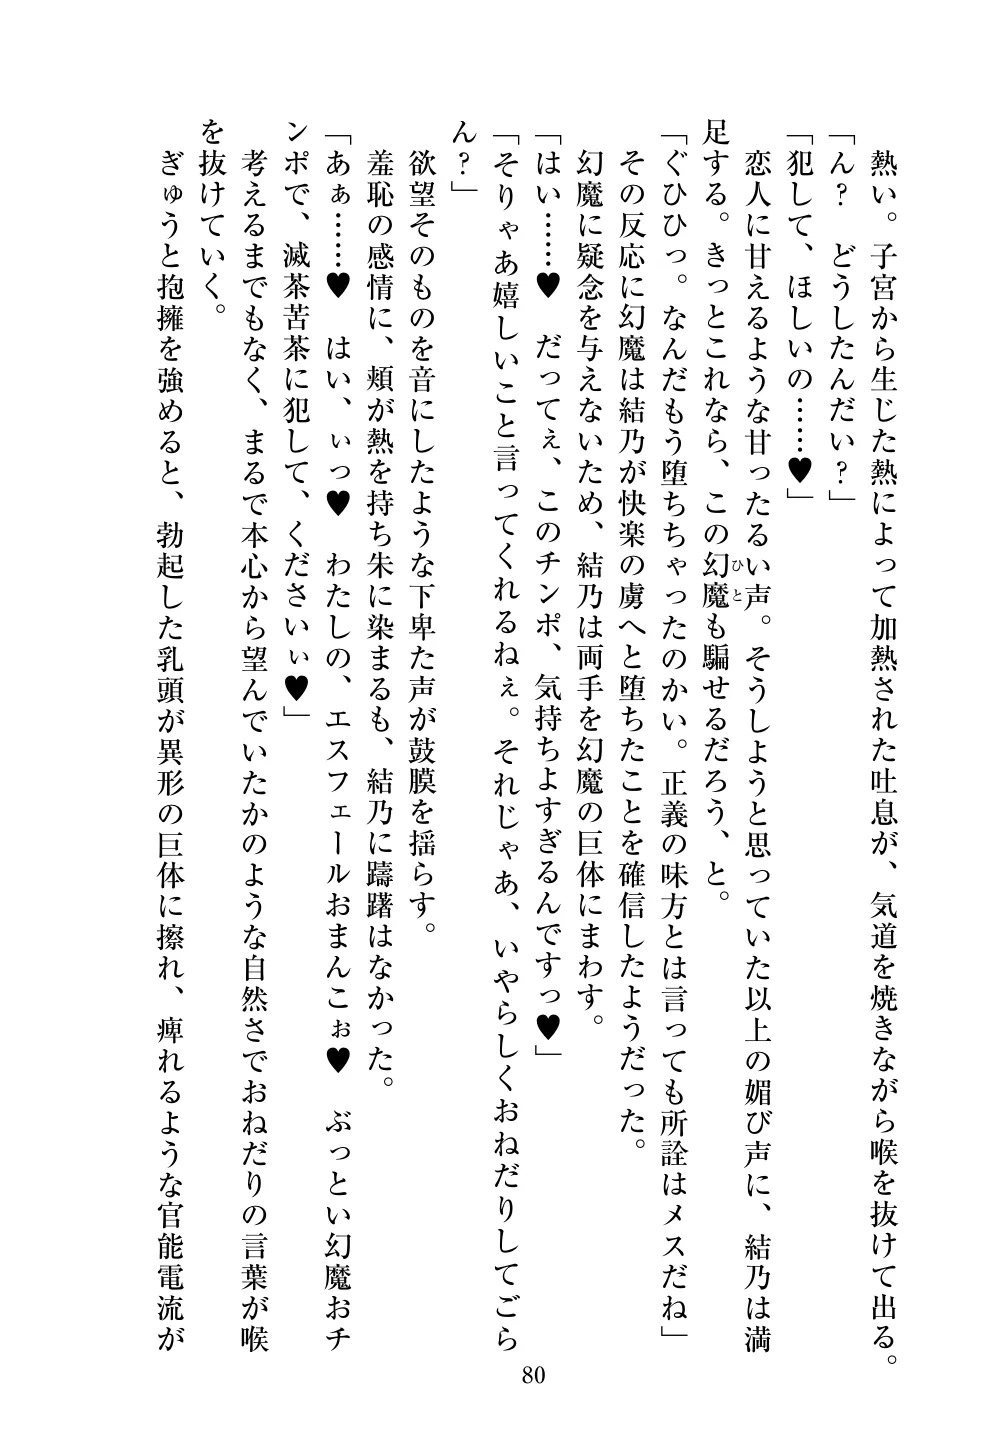 熱い。子宮から生じた熱によって加熱された吐息が、気道を焼きながら喉を抜けて出る。
「ん？　どうしたんだい？」
「犯して、ほしいの……♥」
恋人に甘えるような甘ったるい声。そうしようと思っていた以上の媚び声に、結乃は満
足する。きっとこれなら、この幻魔も騙せるだろう、と。
ひと
「ぐひひっ。なんだもう堕ちちゃったのかい。正義の味方とは言っても所詮はメスだね」
その反応に幻魔は結乃が快楽の虜へと堕ちたことを確信したようだった。
幻魔に疑念を与えないため、結乃は両手を幻魔の巨体にまわす。
「はい……♥　だってぇ、このチンポ、気持ちよすぎるんですっ♥」
「そりゃあ嬉しいこと言ってくれるねぇ。それじゃあ、いやらしくおねだりしてごら
ん？」
欲望そのものを音にしたような下卑た声が鼓膜を揺らす。
羞恥の感情に、頬が熱を持ち朱に染まるも、結乃に躊躇はなかった。
「あぁ……♥　はい、ぃっ♥　わたしの、エスフェールおまんこぉ♥　ぶっとい幻魔おチ
ンポで、滅茶苦茶に犯して、くださいぃ♥」
考えるまでもなく、まるで本心から望んでいたかのような自然さでおねだりの言葉が喉
を抜けていく。
ぎゅうと抱擁を強めると、勃起した乳頭が異形の巨体に擦れ、痺れるような官能電流が
80